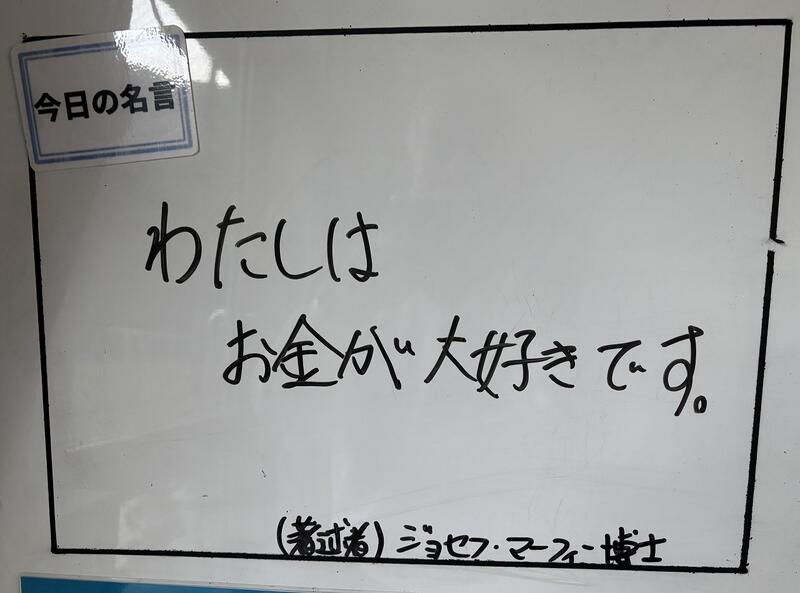 今日の名言
わたしは
お金が大好きです。
(著述者) ジョセフ・マーフィー博士